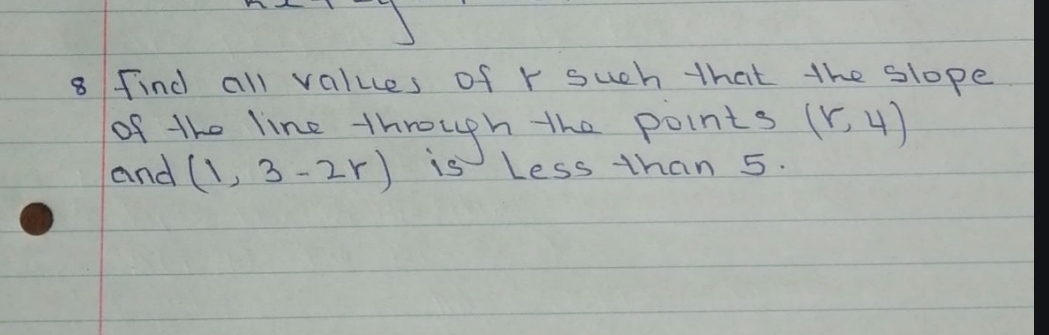 8 find all values of r such that the slope
of the line through the points (r, 4)
and (1, 3 - 2r) is less than 5.